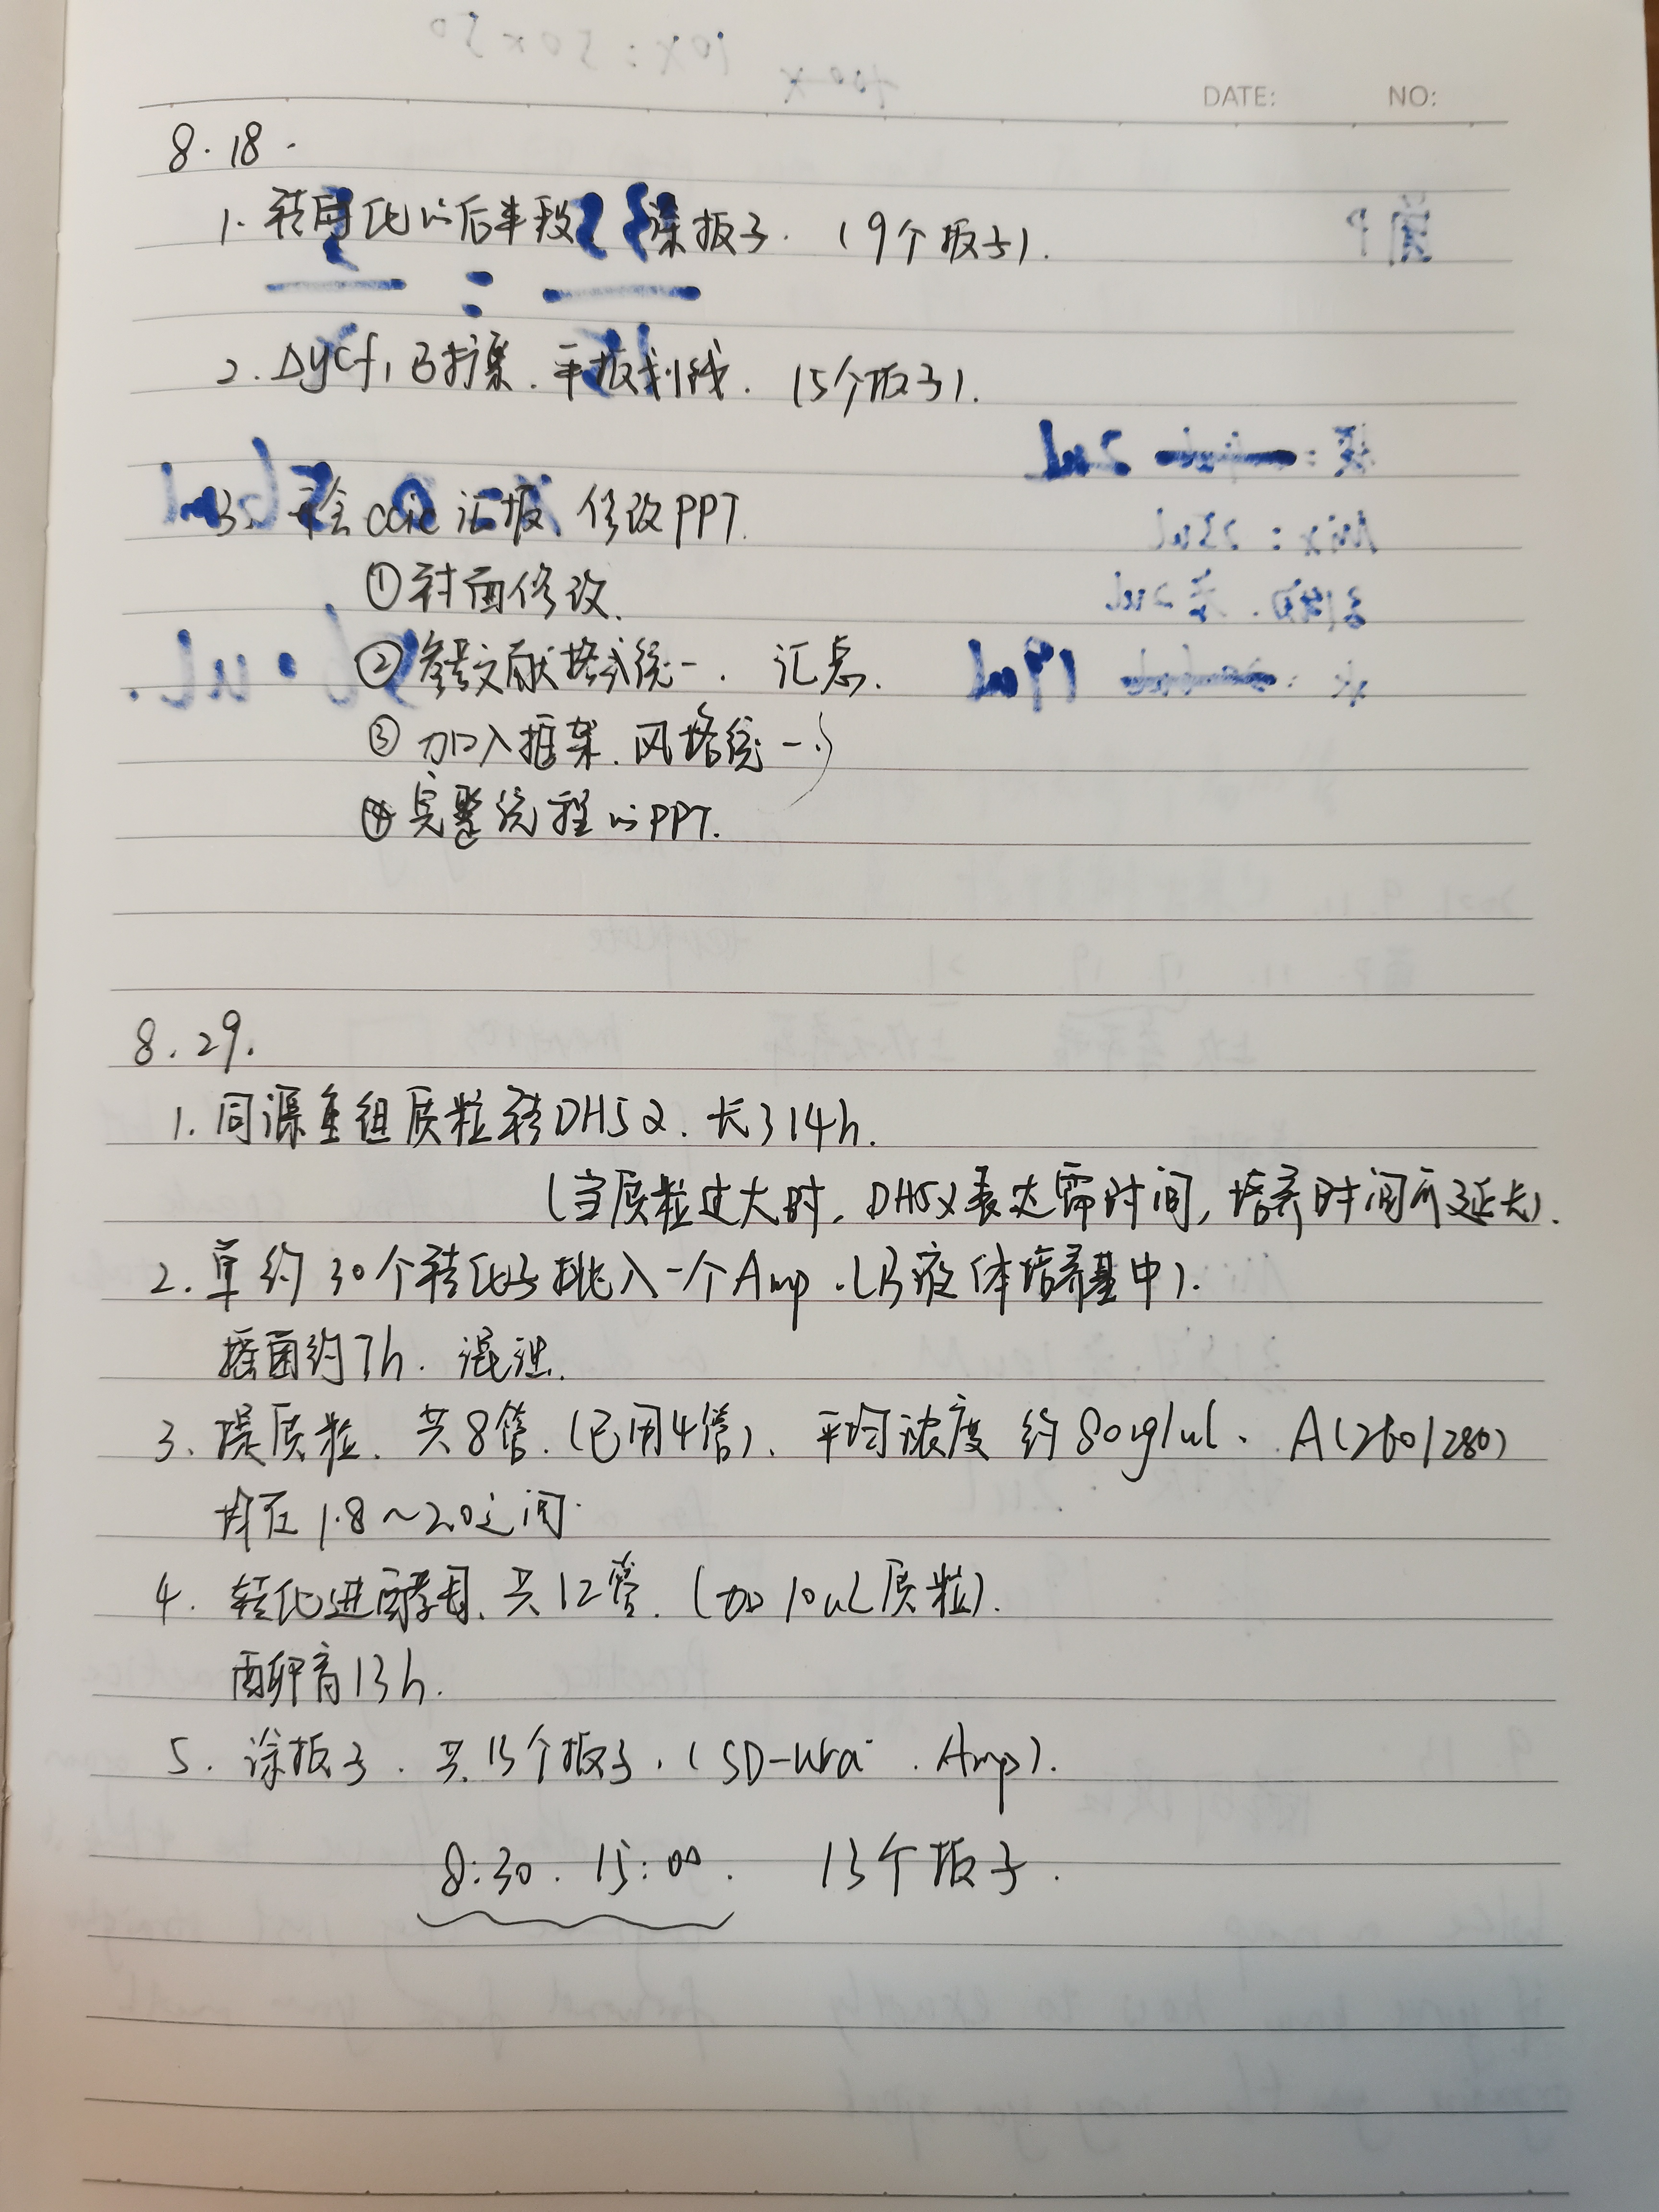 DATE: NO:
8.18.
1. 转化的后半段 涂板子. (9个板子).
2. Δycf1已扩集. 平板划线. (5个板子).
3. 会ccic汇报 修改PPT.
①封面修改.
②参考文献格式统一. 汇总.
③加入框架. 风格统一.
④完整流程的PPT.
8.29.
1. 同源重组质粒转DH5α. 长了14h.
(当质粒过大时, DH5α表达需时间, 培养时间可延长).
2. 单约30个转化子挑入一个Amp.LB液体培养基中).
摇菌约7h. 混浊.
3. 提质粒. 共8管. (已用4管). 平均浓度约80ng/ul. A(260/280)
均在1.8~2.0之间.
4. 转化进酵母. 共12管. (加10uL质粒).
酉孵育13h.
5. 涂板子. 共13个板子. (SD-Ura⁻. Amp).
8:30. 15:00. 13个板子.